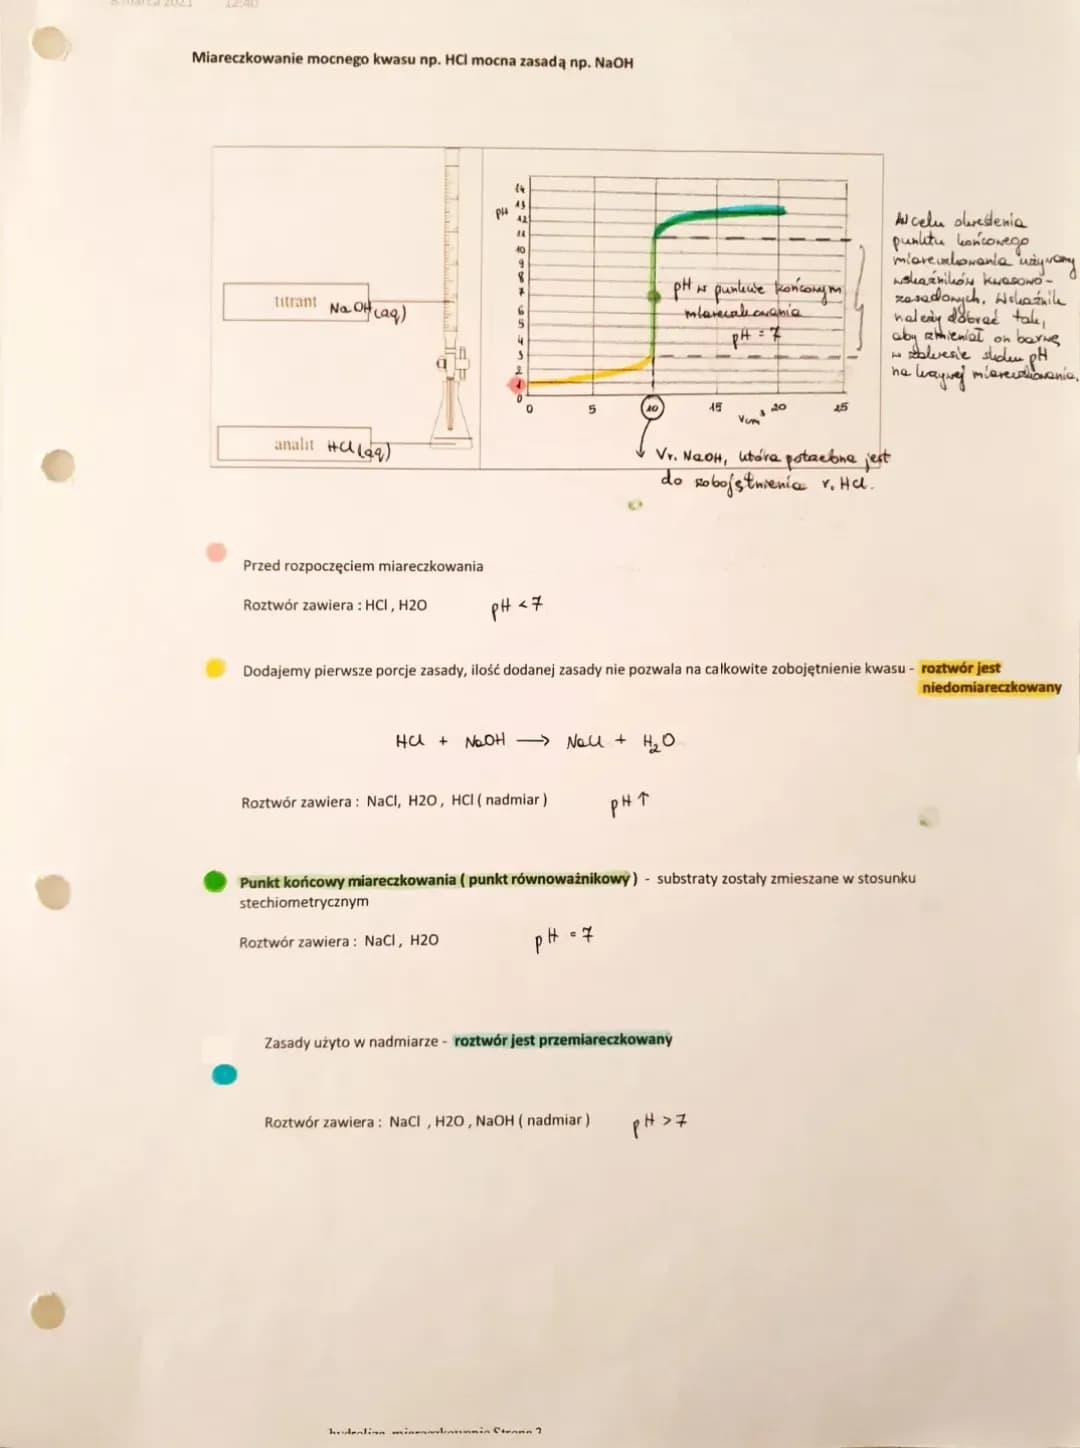 8 marca 2021 12:40
Miareczkowanie mocnego kwasu np. HCl mocna zasadą np. NaOH
titrant NaOH(aq)
analit HCl(aq)
pH
14
13
12
11
10
9
8
7
6
5
4
3
2
1
0
0 5 10 15 20 25
Vcm³
pH w punkcie końcowym
miareczkowania
pH = 7
W celu określenia
punktu końcowego
miareczkowania używamy
wskaźników kwasowo-
zasadowych. Wskaźnik
należy dobrać tak,
aby zmieniał on barwę
w zakresie skoku pH
na krzywej miareczkowania.
Vr. NaOH, która potrzebna jest
do zobojętnienia r. HCl.
Przed rozpoczęciem miareczkowania
Roztwór zawiera : HCl , H2O pH < 7
Dodajemy pierwsze porcje zasady, ilość dodanej zasady nie pozwala na całkowite zobojętnienie kwasu - roztwór jest
niedomiareczkowany
HCl + NaOH → NaCl + H₂O
Roztwór zawiera : NaCl, H2O , HCl ( nadmiar ) pH ↑
Punkt końcowy miareczkowania ( punkt równoważnikowy ) - substraty zostały zmieszane w stosunku
stechiometrycznym
Roztwór zawiera : NaCl , H2O pH = 7
Zasady użyto w nadmiarze - roztwór jest przemiareczkowany
Roztwór zawiera : NaCl , H2O , NaOH ( nadmiar ) pH > 7
Strona 2